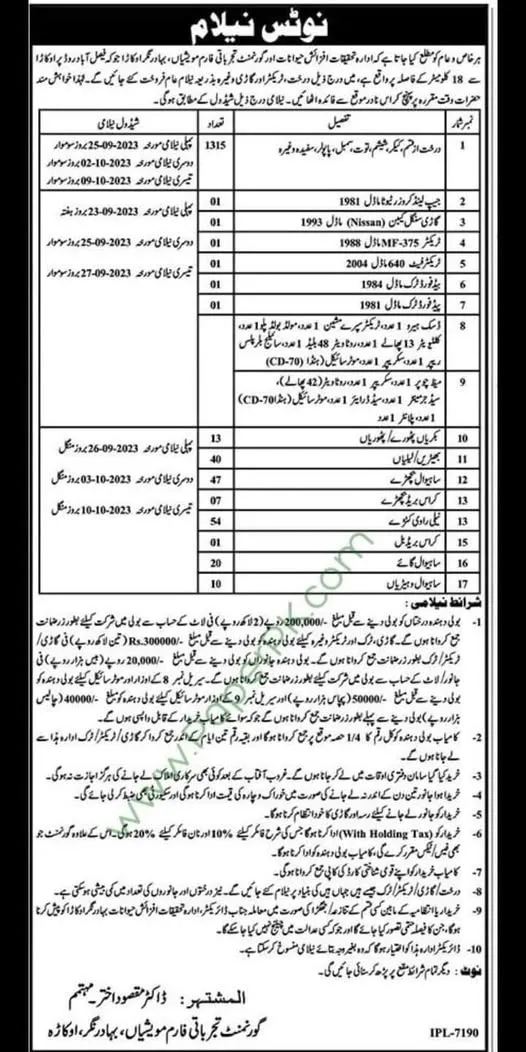 نوٹس نیلام
ہر خاص و عام کو مطلع کیا جاتا ہے کہ ادارہ تحقیقات افزائش حیوانات اور گورنمنٹ تجرباتی فارم مویشیاں، بہادرنگر اوکاڑا جو کہ فیصل آباد روڈ پر اوکاڑا
سے 18 کلومیٹر کے فاصلہ پر واقع ہے، میں درج ذیل درخت، ٹریکٹر اور گاڑی وغیرہ بذریعہ نیلام عام فروخت کئے جائیں گے۔ لہٰذا خواہش مند
حضرات وقت مقررہ پر پہنچ کر اس نادر موقع سے فائدہ اٹھائیں۔ نیلامی درج ذیل شیڈول کے مطابق ہوگی۔
نمبر شمار تفصیل تعداد شیڈول نیلامی
1 درخت از قسم، کیکر، شیشم، توت، سمبل، پاپولر، سفیدہ وغیرہ 1315 پہلی نیلامی مورخہ 25-09-2023 بروز سوموار
دوسری نیلامی مورخہ 02-10-2023 بروز سوموار
تیسری نیلامی مورخہ 09-10-2023 بروز سوموار
2 جیپ لینڈ کروزر ٹیوٹا ماڈل 1981 01 پہلی نیلامی مورخہ 23-09-2023 بروز ہفتہ
3 گاڑی سنگل کیبن (Nissan) ماڈل 1993 01
4 ٹریکٹر MF-375 ماڈل 1988 01 دوسری نیلامی مورخہ 25-09-2023 بروز سوموار
5 ٹریکٹر فیٹ 640 ماڈل 2004 01 تیسری نیلامی مورخہ 27-09-2023 بروز سوموار
6 بیڈفورڈ ٹرک ماڈل 1984 01
7 بیڈفورڈ ٹرک ماڈل 1981 01
8 ڈسک ہیرو 1 عدد، ٹریکٹر سپرے مشین 1 عدد، مولڈ بولڈ پلو 1 عدد،
کلٹیویٹر 13 پھالے 1 عدد، روٹا ویٹر 48 بلیڈ 1 عدد، سائیلج بلر پلس
ریپر 1 عدد، سکریپر 1 عدد، موٹر سائیکل (ہنڈا CD-70)
9 میڈ چوپر 1 عدد، سکریپر 1 عدد، روٹا ویٹر (42 پھالے)،
سیڈ جرمینٹر 1 عدد، سیڈ ڈرایئر 1 عدد، موٹر سائیکل (ہنڈا CD-70)
1 عدد، پلانٹر 1 عدد
10 بکریاں پٹھورے/پٹھوریاں 13 پہلی نیلامی مورخہ 26-09-2023 بروز منگل
11 بھیڑیں/لیلیاں 40
12 ساہیوال بچھڑے 47 دوسری نیلامی مورخہ 03-10-2023 بروز منگل
13 کراس بریڈ بچھڑے 07 تیسری نیلامی مورخہ 10-10-2023 بروز منگل
13 نیلی راوی کٹڑے 54
15 کراس بریڈ بل 01
16 ساہیوال گائے 20
17 ساہیوال وہیڑیاں 10
شرائط نیلامی:
1- بولی دہندہ درختاں کو بولی دینے سے قبل مبلغ -/200,000 روپے (2 لاکھ روپے) فی لاٹ کے حساب سے بولی میں شرکت کیلئے بطور زر ضمانت
جمع کروانا ہوں گے۔ گاڑی، ٹرک اور ٹریکٹر وغیرہ کیلئے بولی دہندہ کو بولی دینے سے قبل مبلغ -/Rs.300000 (تین لاکھ روپے) فی گاڑی/
ٹریکٹر/ٹرک بطور زر ضمانت جمع کروانا ہوں گے۔ بولی دہندہ جانوراں کو بولی دینے سے قبل مبلغ -/20,000 روپے (بیس ہزار روپے) فی
جانور/لاٹ کے حساب سے بولی میں شرکت کیلئے بطور زر ضمانت جمع کروانا ہوں گے۔ سیریل نمبر 8 کے اوزار موٹر سائیکل کیلئے بولی دہندہ کو
بولی دینے سے قبل مبلغ -/50000 (پچاس ہزار روپے) اور سیریل نمبر 9 کے اوزار موٹر سائیکل کیلئے بولی دہندہ کو مبلغ -/40000 (چالیس
ہزار روپے) بولی دینے سے پہلے بطور زر ضمانت جمع کروانا ہوں گے جو کہ سوائے کامیاب خریدار کے قابل واپسی ہوں گے۔
2- کامیاب بولی دہندہ کو کل رقم کا 1/4 حصہ موقع پر جمع کروانا ہوگا اور بقیہ رقم تین ایام کے اندر جمع کروا کر گاڑی/ٹریکٹر/ٹرک ادارہ ہذا سے
لے جانا ہوں گے۔
3- خرید کیا گیا سامان دفتری اوقات میں لے کر جانا ہوں گے۔ غروب آفتاب کے بعد کوئی بھی سرکاری املاک لے جانے کی ہرگز اجازت نہ ہوگی۔
4- خریدا ہوا جانور تین دن کے اندر نہ لے جانے کی صورت میں خوراک و چارہ کی قیمت ادا کرنا ہوگی اور سکیورٹی بھی ضبط کر لی جائے گی۔
5- خریدار کو جانور لے جانے کیلئے رسہ اور گاڑی کا خود انتظام کرنا ہوگا۔
6- خریدار کو (With Holding Tax) ادا کرنا ہوگا جس کی شرح فائلر کیلئے 10% اور نان فائلر کیلئے 20% ہوگی۔ اس کے علاوہ گورنمنٹ جو
بھی فیس/ٹیکس مقرر کرے گی، کامیاب بولی دہندہ کو ادا کرنا ہوگا۔
7- کامیاب خریدار کو اپنے قومی شناختی کارڈ کی کاپی جمع کروانا ہوگی۔
8- درخت/گاڑی/ٹریکٹر/ٹرک جیسے ہیں جہاں ہیں کی بنیاد پر نیلام کئے جائیں گے۔ نیز درختوں اور جانوروں کی تعداد میں کمی بیشی ہو سکتی ہے۔
9- خریدار یا انتظامیہ کے مابین کسی قسم کے تنازعہ/جھگڑا کی صورت میں معاملہ جناب ڈائریکٹر، ادارہ تحقیقات افزائش حیوانات بہادرنگر اوکاڑا کو پیش کرنا
ہوگا، جن کا فیصلہ حتمی تصور کیا جائے گا اور جو کہ کسی عدالت میں چیلنج نہیں کیا جا سکے گا۔
10- ڈائریکٹر ادارہ ہذا کو اختیار ہوگا کہ وہ بغیر وجہ بتائے نیلامی منسوخ کر سکتا ہے۔
نوٹ: دیگر تمام شرائط موقع پر پڑھ کر سنائی جائیں گی۔
المشتہر: ڈاکٹر مقصود اختر۔ مہتمم
گورنمنٹ تجرباتی فارم مویشیاں، بہادرنگر، اوکاڑہ
IPL-7190
www.PaperPk.com